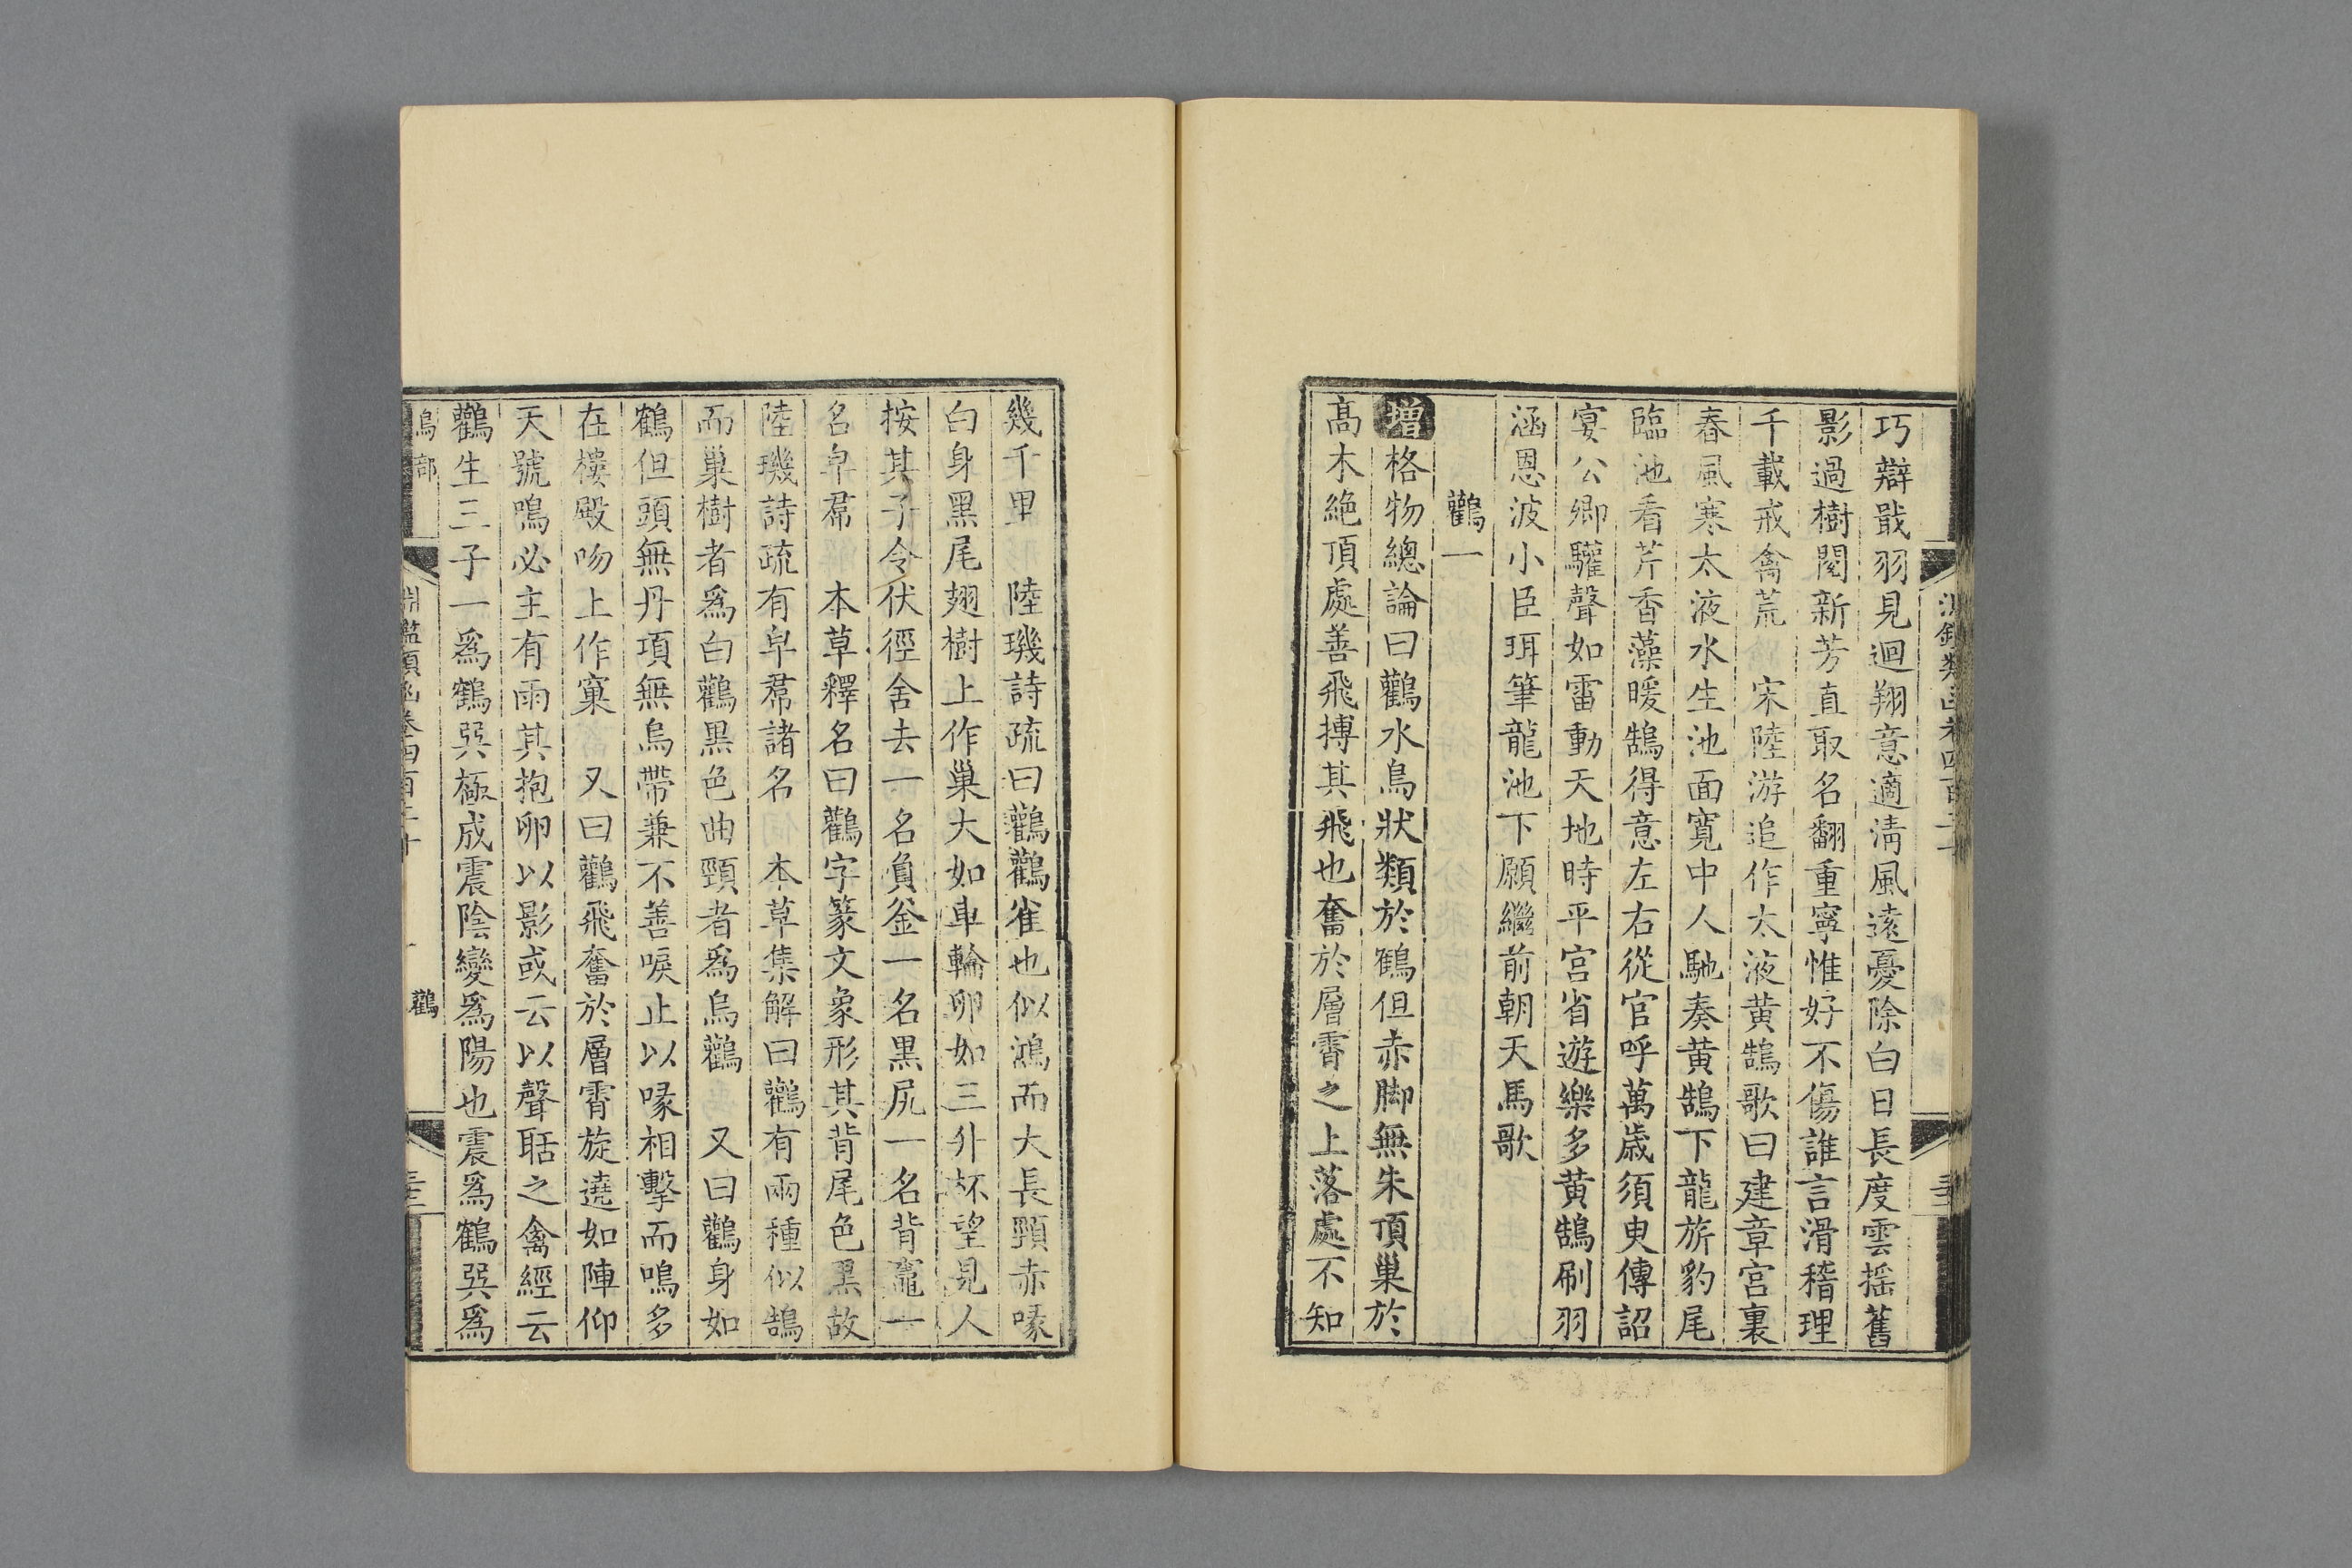 巧辯戢羽見迴翔意適淸風遠憂除白日長度雲揺舊
影過樹閱新芳直取名翻重寧惟好不傷誰言滑稽理
千載戒禽荒 宋陸游追作太液黄鵠歌曰建章宮裏
春風寒太液水生池面寬中人馳奏黄鵠下龍旂豹尾
臨池看芹香藻暖鵠得意左右從官呼萬歳須臾傳詔
宴公卿驩聲如雷動天地時平宮省遊樂多黄鵠刷羽
涵恩波小臣珥筆龍池下願繼前朝天馬歌
鸛一
增格物總論曰鸛水鳥狀類於鶴但赤脚無朱頂巢於
高木絶頂處善飛摶其飛也奮於層霄之上落處不知
幾千里 陸璣詩疏曰鸛鸛雀也似鴻而大長頸赤喙
白身黑尾翅樹上作巢大如車輪卵如三升杯望見人
按其子令伏徑舍去一名負釜一名黑尻一名背竈一
名皁帬 本草釋名曰鸛字篆文象形其背尾色黑故
陸璣詩疏有皁帬諸名 本草集解曰鸛有兩種似鵠
而巢樹者爲白鸛黑色曲頸者爲烏鸛 又曰鸛身如
鶴但頭無丹項無烏帶兼不善唳止以喙相擊而鳴多
在樓殿吻上作窠 又曰鸛飛奮於層霄旋遶如陣仰
天號鳴必主有雨其抱卵以影或云以聲聒之禽經云
鸛生三子一爲鶴巽極成震陰變爲陽也震爲鶴巽爲
鳥部 淵鑑類函卷四百二十 鸛